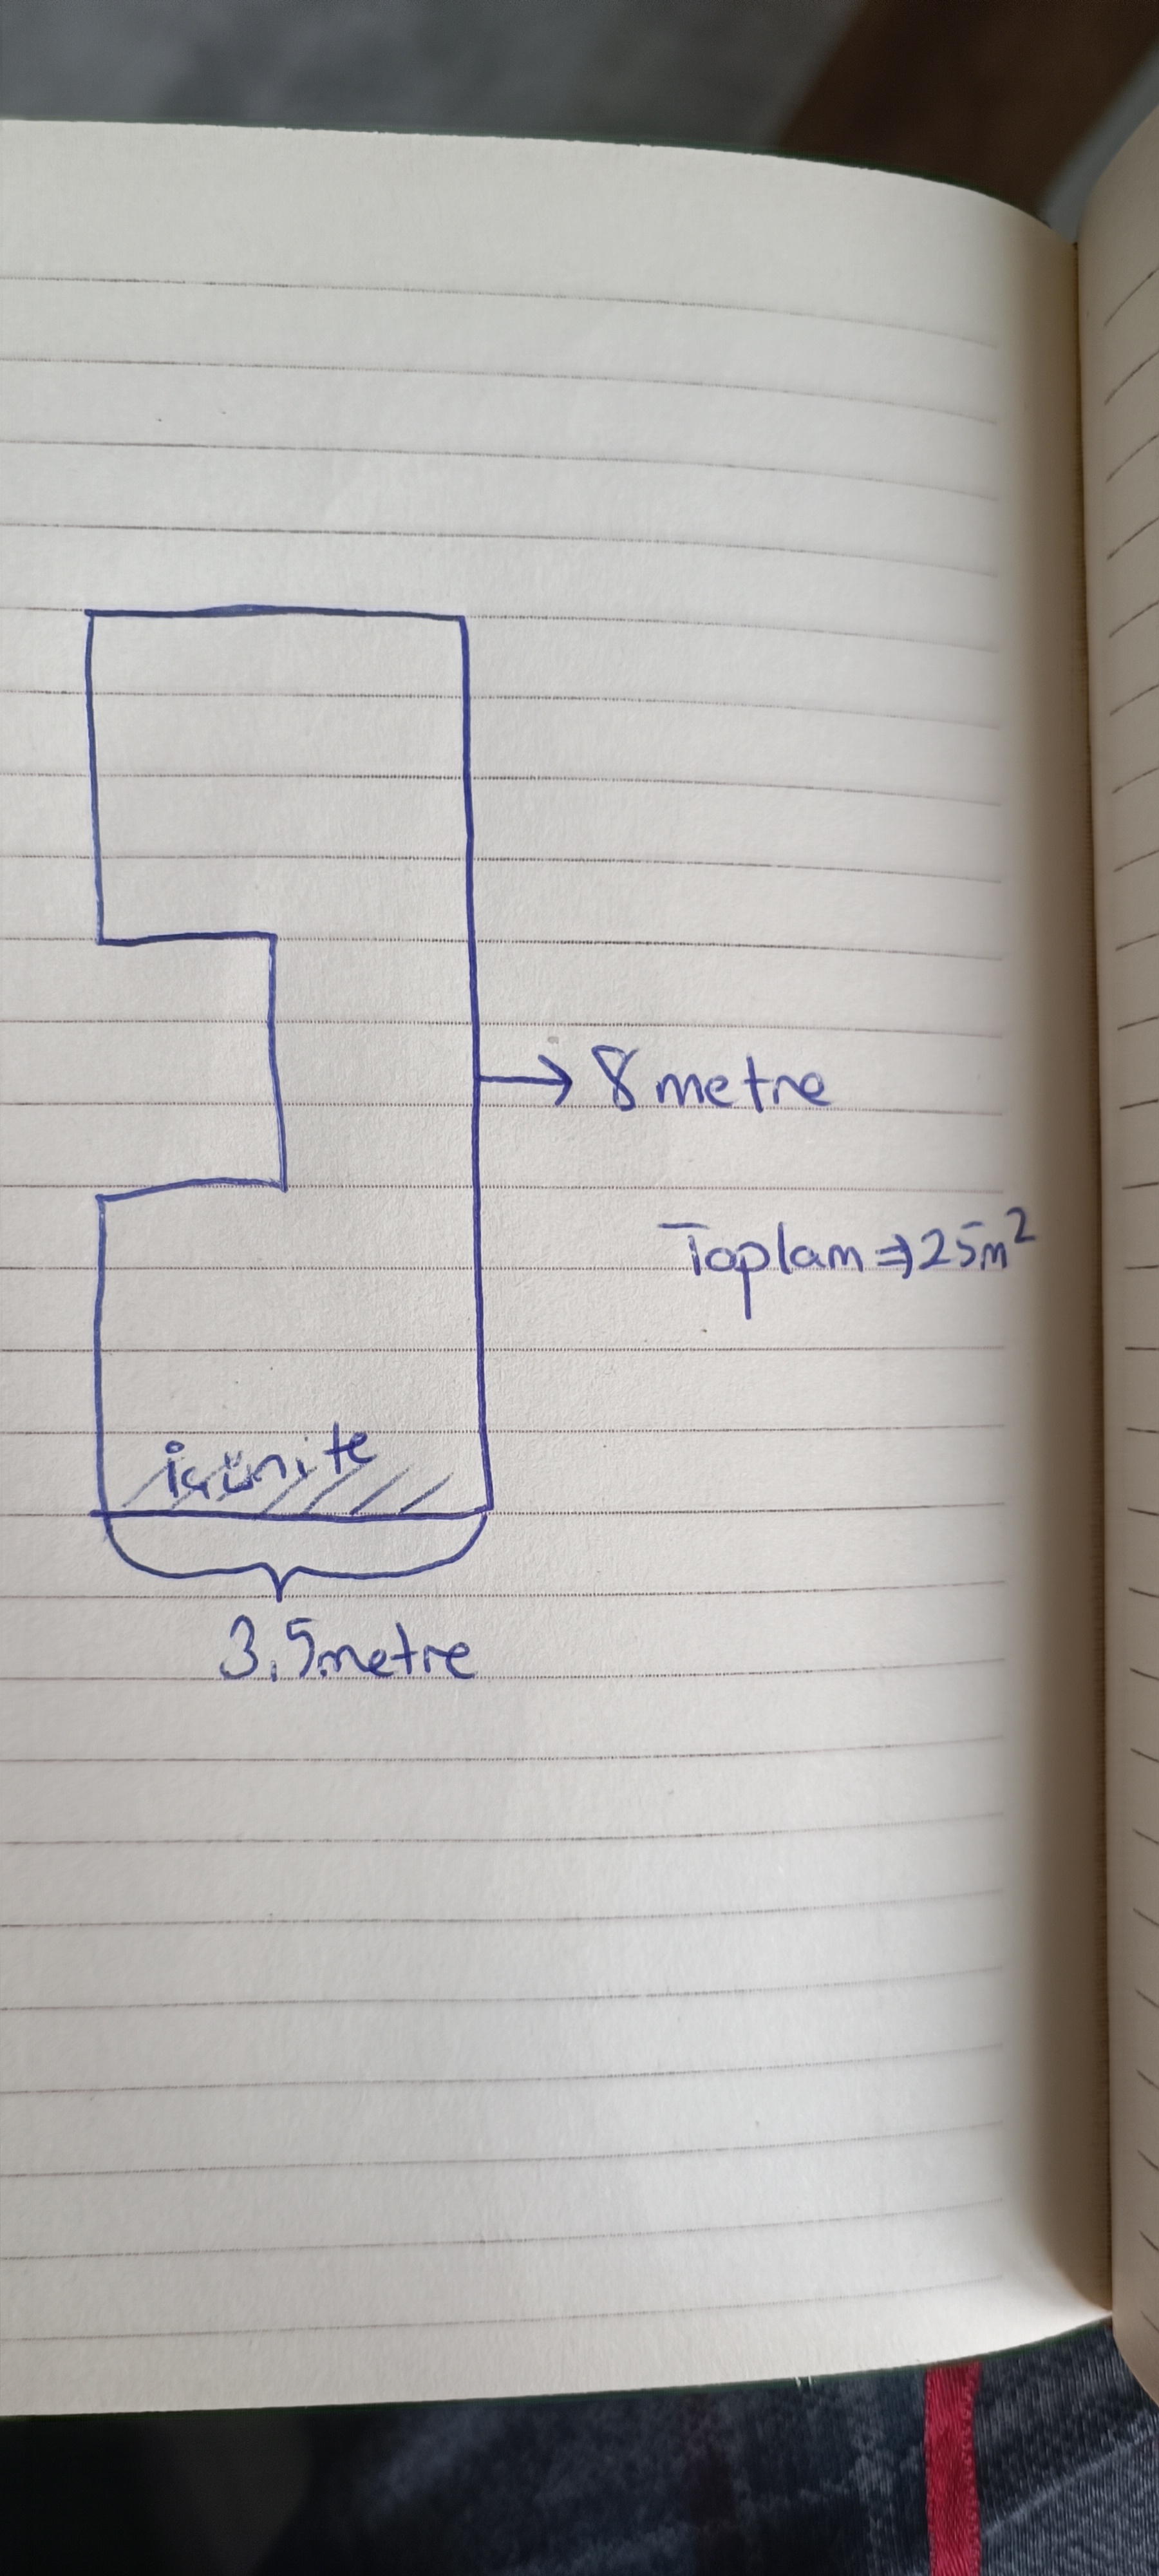 8 metre
Toplam ⇒ 25m²
iç ünite
3.5metre